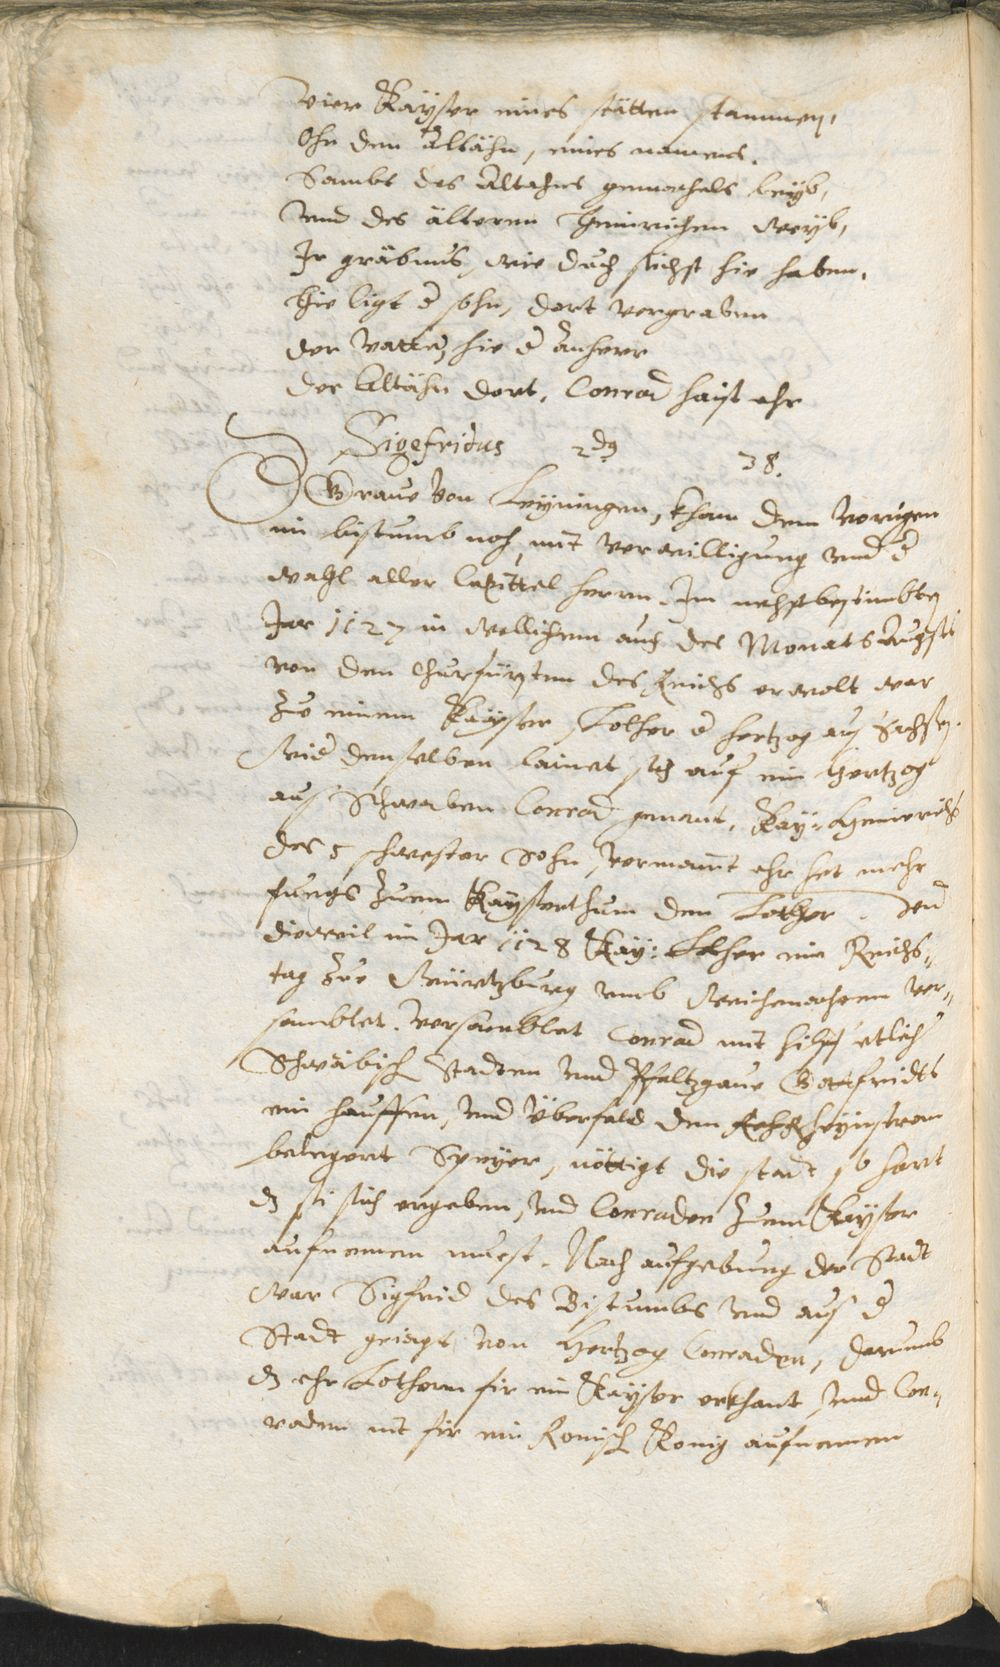 Vier Kayser eines stätten stammen,
Ohn den Altähn, eines namens.
Sambt des Altahns gemachels leyb,
Und des älteren Heinrichen Weyb,
Ir gräbnus, wie duch sichst hie haben.
Hie ligt d sohn, dort vergraben
der Vatter, hie d Anherr
der Altähn dort, Conrad haist ehr
Sigefridus 2dg 38.
Grave von Leyningen, kham dem vorigen
im bistumb noh, mit verwilligung und d
wahl aller Capittel herrn. Im nehstbestimbten
Jar 1127 in wellichem auch des Monats Augsti
von den Churfürsten des Reichs erwolt war
zue einem Kayser Lother d hertzog aus Sachsen.
Wid denselben lainet sich auf ein Hertzog
aus Schwaben Conrad genant, Kay: Heinrichs
des 5 schwester Sohn, vermaint ehr het mehr
fuegs zuem Kayserthum den Lother. Den
dieweil im Jar 1128 Kay: Lother ein Reichs-
tag zue Würtzburg umb Weichenachten ver-
samblet. Versamblet Conrad mit hilff etlich
Schwäbisch Stadten und Pfaltzgave Gotfridts
ein hauffen, und Überfald den Rheynstrom
belegert Speyer, nöttigt die stadt so hart
dz si sich ergeben, und Conraden zuem Kayser
aufnemen muest. Nach aufgebung der Stadt
war Sigfrid des Bistumbs und aus d
Stadt geiagt von Hertzog Conraden, darumb
dz ehr Lothern fir ein Kayser erkhant, und Con-
raden nit fir ein Romisch Konig aufnemen